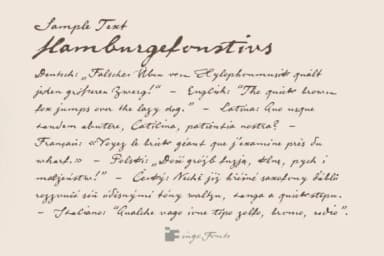 Sample Text
Hamburgefonstivs
Deutsch: „Falsches Üben von Xylophonmusik quält
jeden größeren Zwerg!“ – English: "The quick brown
fox jumps over the lazy dog." – Latina: Quo usque
tandem abutere, Catilina, patientia nostra? –
Français: «Voyez le brick géant que j'examine près du
wharf.» – Polski: „Dość gróźb fuzją, klnę, pych i
małżeństw!“ – Český: Nechť již hříšné saxofony ďáblů
rozzvučí síň úděsnými tóny waltzu, tanga a quickstepu.
– Italiano: "Qualche vago ione tipo zolfo, bromo, sodio".
ingo Fonts